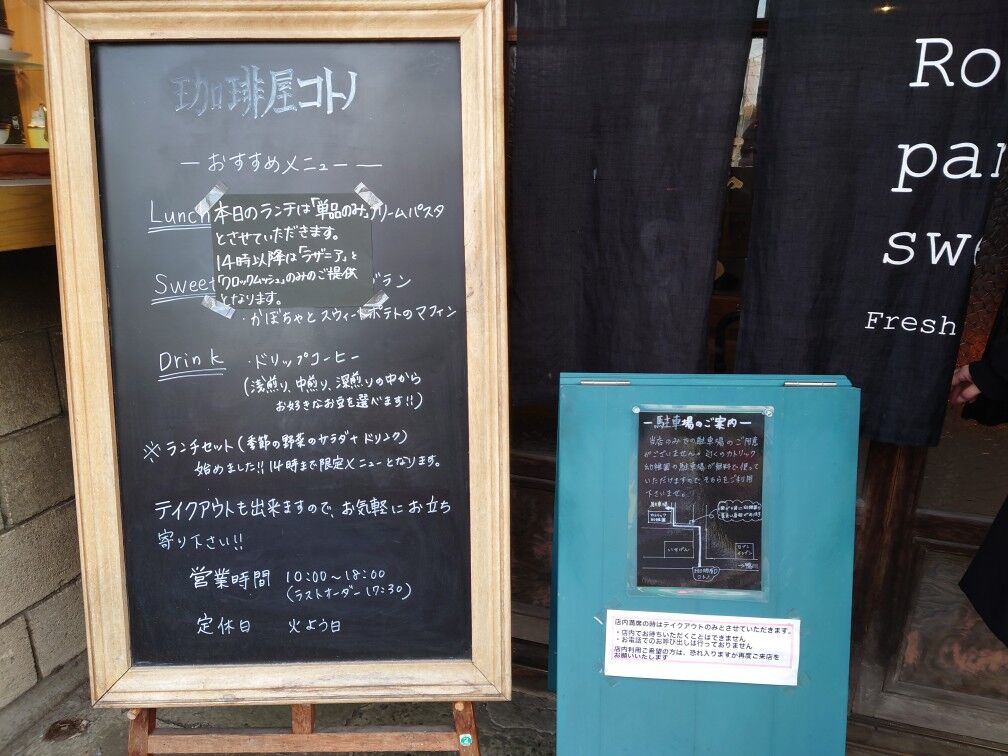 珈琲屋コトノ
―おすすめメニュー―
Lunch
本日のランチは「単品のみ」クリームパスタ
とさせていただきます。
14時以降は「ラザニア」と
「クロックムッシュ」のみのご提供
となります。
Sweet
ブラン
・かぼちゃとスウィートポテトのマフィン
Drink ・ドリップコーヒー
(浅煎り、中煎り、深煎りの中から
お好きなお豆を選べます!!)
※ランチセット(季節の野菜のサラダ+ドリンク)
始めました!!14時まで限定メニューとなります。
テイクアウトも出来ますので、お気軽にお立ち
寄り下さい!!
営業時間 10:00~18:00
(ラストオーダー17:30)
定休日 火よう日
Ro
pan
swe
Fresh
―駐車場のご案内―
当店のみでの駐車場のご用意
がございません。近くのカトリック
幼稚園の駐車場が無料で使って
いただけますので、そちらをご利用
下さいませ。
駐車場
カトリック
幼稚園
セブン
イレブン
珈琲屋
コトノ
店内満席の時はテイクアウトのみとさせていただきます。
・店内でお待ちいただくことはできません
・お電話でのお呼び出しは行っておりません
店内利用ご希望の方は、恐れ入りますが再度ご来店を
お願いいたします